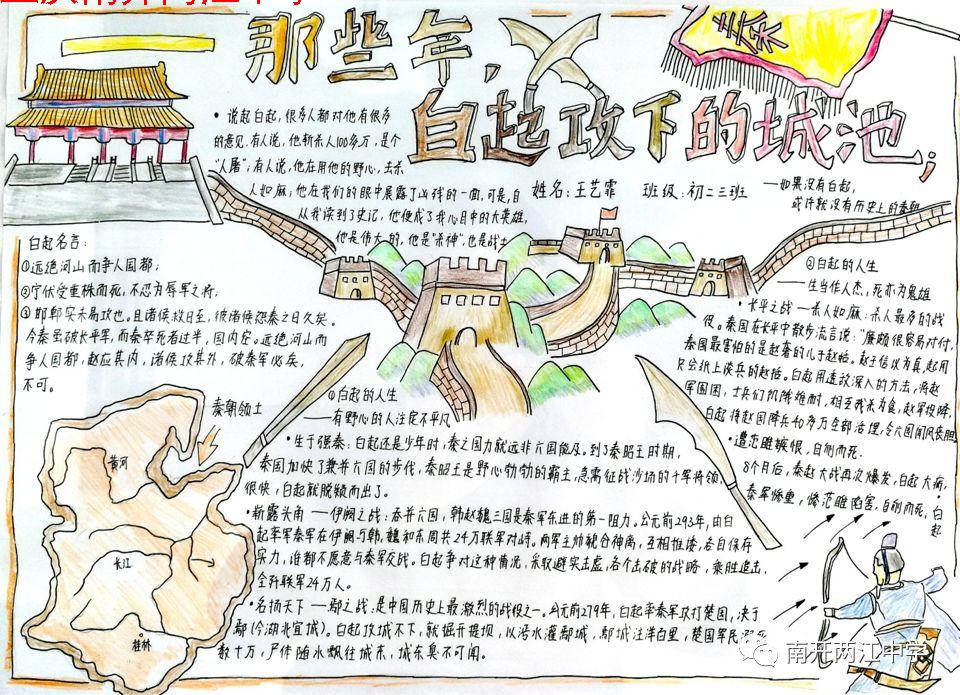 那些年，
白起攻下的城池；
秦
姓名：王艺霏 班级：初二三班
——如果没有白起，
或许就没有历史上的秦朝
• 说起白起，很多人都对他有很多
的意见，有人说，他斩杀人100多万，是个
"人屠"；有人说，他在用他的野心，去杀
人如麻，他在我们的眼中展露了凶残的一面，可是，自
从我读到了史记，他便成了我心目中的大英雄，
他是伟大的，他是"杀神"，也是战士
白起名言：
①远绝河山而争人国都；
②宁伏受重诛而死，不忍为辱军之将；
③邯郸实未易攻也。且诸侯救日至，彼诸侯怨秦之日久矣。
今秦虽破长平军，而秦卒死者过半，国内空。远绝河山而
争人国都，赵应其内，诸侯攻其外，破秦军必矣，
不可。
秦朝领土
黄河
长江
桂林
①白起的人生
——有野心的人注定不平凡
• 生于强秦：白起还是少年时，秦之国力就远非六国能及。到了秦昭王时期，
秦国加快了兼并六国的步伐，秦昭王是野心勃勃的霸主，急需征战沙场的千军将领，
很快，白起就脱颖而出了。
• 崭露头角——伊阙之战：吞并六国，韩赵魏三国是秦军东进的第一阻力。公元前293年，由白
起率军秦军在伊阙与韩，魏和东周共24万联军对峙。两军主帅貌合神离，互相推诿，各自保存
实力，谁都不愿意与秦军交战。白起争对这种情况，采取避实击虚，各个击破的战略，乘胜追击，
全歼联军24万人。
• 名扬天下——鄢之战：是中国历史上最激烈的战役之一。公元前279年，白起率秦军攻打楚国，决于
鄢（今湖北宜城）。白起攻城不下，就掘开堤坝，以污水灌鄢城，鄢城汪洋百里，楚国军民
数十万，尸体随水飘往城东，城东臭不可闻。
②白起的人生
——生当作人杰，死亦为鬼雄
• 长平之战——杀人如麻：杀人最多的战
役。秦国在长平中散步流言说："廉颇很容易对付，
秦国最害怕的是赵奢的儿子赵括。赵王信以为真，起用
只会纸上谈兵的赵括。白起用透敌深入的方法，将赵
军围困，士兵们饥饿难耐，相互残杀为食，赵军投降，
白起将赵国降兵40多万全部活埋，令六国闻风丧胆
• 遭范雎嫉恨，自刎而死：
8个月后，秦赵大战再次爆发，白起大病，
秦军惨重，惨范雎陷害，自刎而死；白
起
南开两江中学